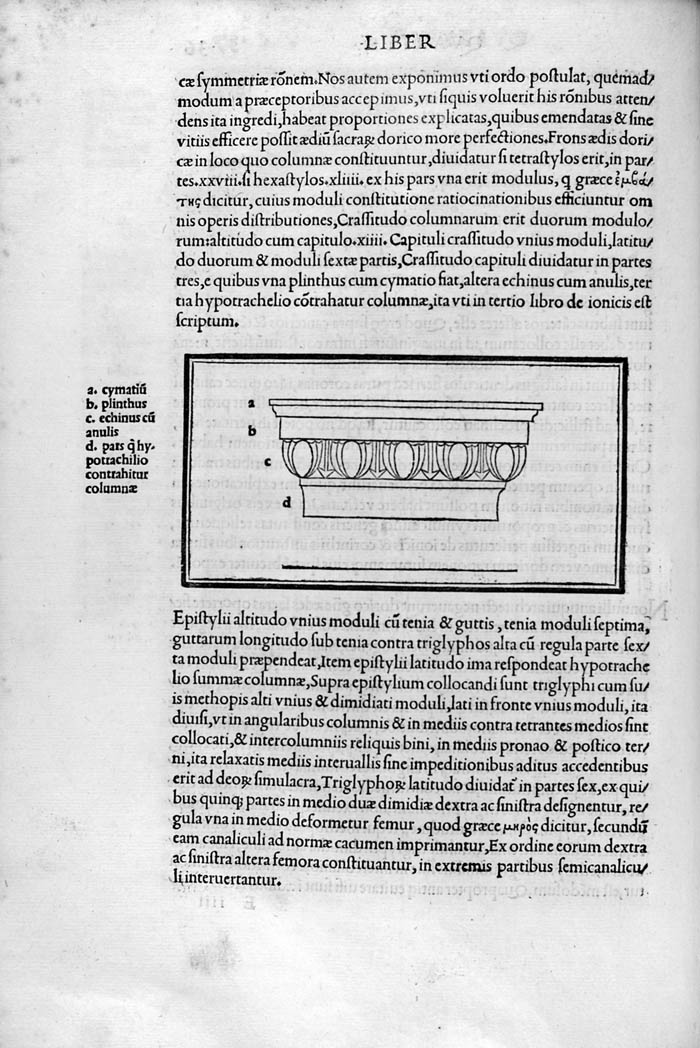 LIBER
cæ ſymmetriæ rōnem. Nos autem exponimus vti ordo poſtulat, quemad/
modum a præceptoribus accepimus, vti ſiquis voluerit his rōnibus atten/
dens ita ingredi, habeat proportiones explicatas, quibus emendatas & ſine
vitiis efficere poſſit ædiū ſacraꝝ dorico more perfectiones. Frons ædis dori/
cæ in loco quo columnæ conſtituuntur, diuidatur ſi tetraſtylos erit, in par/
tes. xxviii. ſi hexaſtylos. xliiii. ex his pars vna erit modulus, q græce ἐμβά/
της dicitur, cuius moduli conſtitutione ratiocinationibus efficiuntur om
nis operis diſtributiones, Craſſitudo columnarum erit duorum modulo/
rum: altitudo cum capitulo. xiiii. Capituli craſſitudo vnius moduli, latitu/
do duorum & moduli ſextæ partis, Craſſitudo capituli diuidatur in partes
tres, e quibus vna plinthus cum cymatio fiat, altera echinus cum anulis, ter
tia hypotrachelio cōtrahatur columnæ, ita vti in tertio libro de ionicis eſt
ſcriptum.
a. cymatiū
b. plinthus
c. echinus cū
anulis
d. pars q̄ hy-
potrachilio
contrahitur
columnæ
a
b
c
d
Epiſtylii altitudo vnius moduli cū tenia & guttis, tenia moduli ſeptima,
guttarum longitudo ſub tenia contra triglyphos alta cū regula parte ſex/
ta moduli præpendeat, Item epiſtylii latitudo ima reſpondeat hypotrache
lio ſummæ columnæ, Supra epiſtylium collocandi ſunt triglyphi cum ſu/
is methopis alti vnius & dimidiati moduli, lati in fronte vnius moduli, ita
diuiſi, vt in angularibus columnis & in mediis contra tetrantes medios ſint
collocati, & intercolumniis reliquis bini, in mediis pronao & poſtico ter/
ni, ita relaxatis mediis interuallis ſine impeditionibus aditus accedentibus
erit ad deoꝝ ſimulacra, Triglyphoꝝ latitudo diuidat̄ in partes ſex, ex qui/
bus quinqꝫ partes in medio duæ dimidiæ dextra ac ſiniſtra deſignentur, re/
gula vna in medio deformetur femur, quod græce μηρὸς dicitur, ſecundū
eam canaliculi ad normæ cacumen imprimantur, Ex ordine eorum dextra
ac ſiniſtra altera femora conſtituantur, in extremis partibus ſemicanalicu/
li interuertantur.